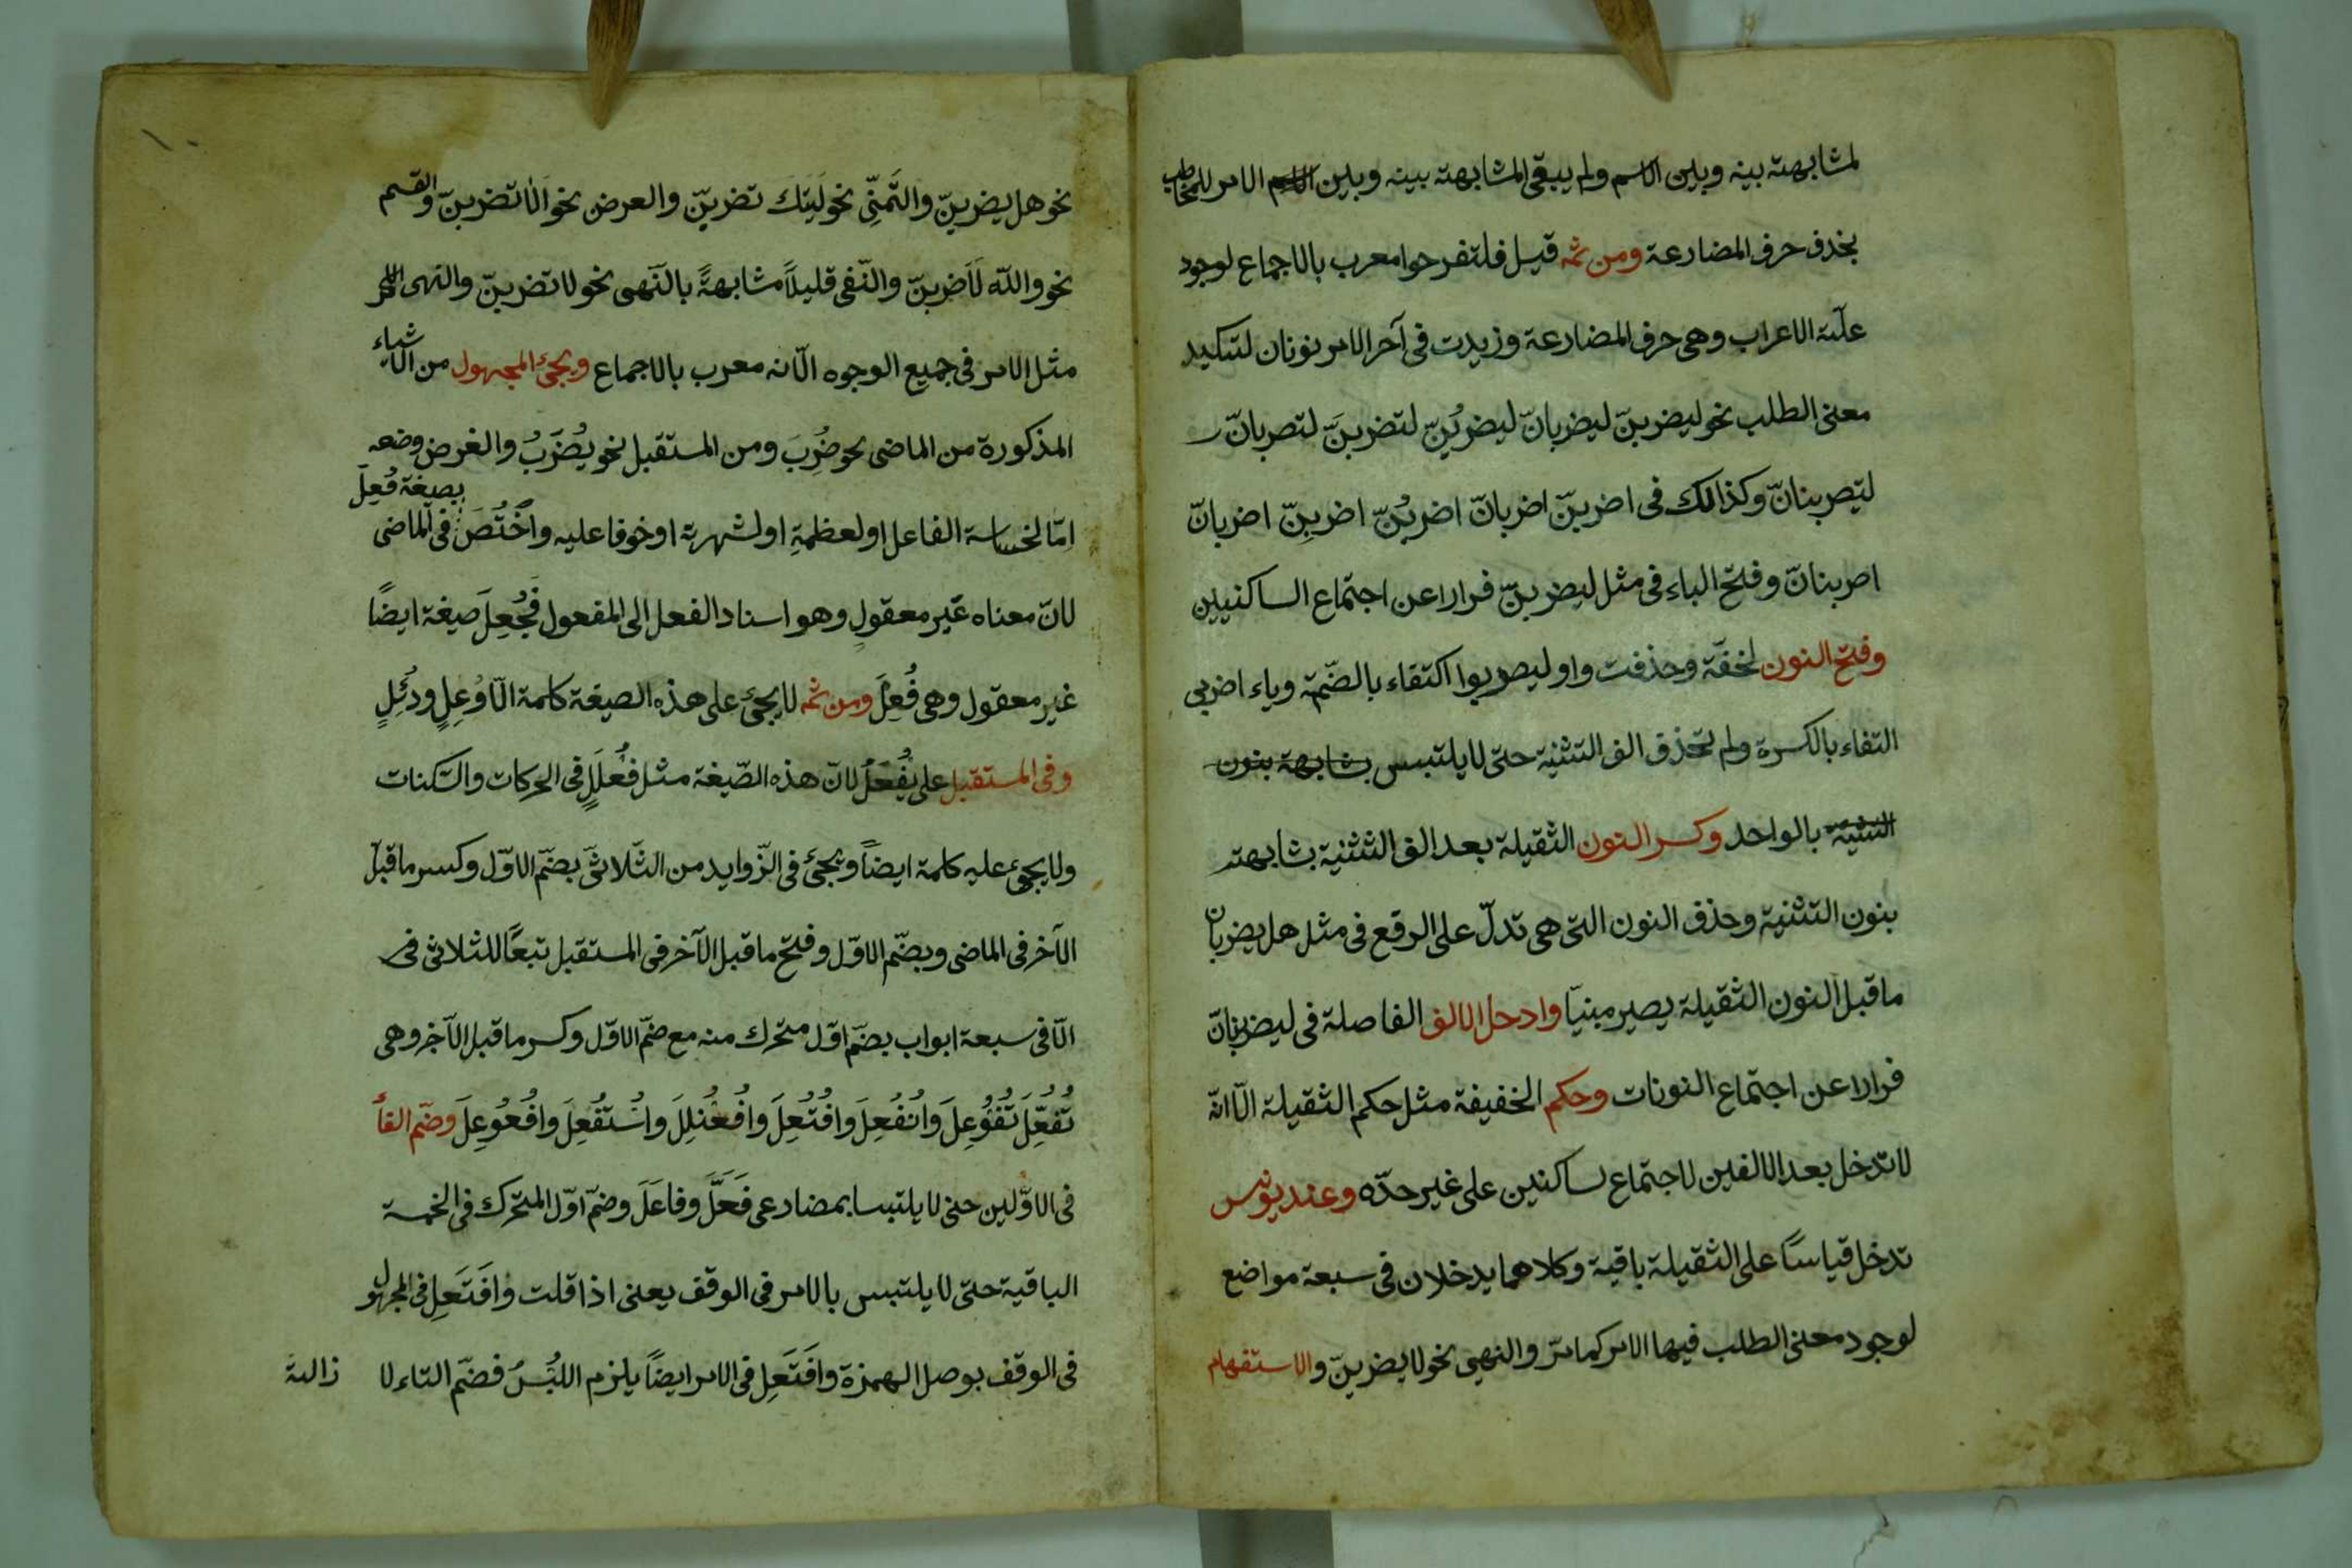 لمشابهته بينه وبين الاسم ولم يبقى المشابهة بينه وبين الامر للمخاطب
بحذف حرف المضارعة ومن ثمه قيل فلتفرحوا معرب بالاجماع لوجود
علّته الاعراب وهى حرف المضارعة وزيدت فى آخر الامر نونان لتىكيد
معنى الطلب نحو ليضربنّ ليضربانّ ليضربُنّ لتضربنَّ لتضربانّ
ليضربنانّ وكذالك فى اضربنّ اضربانّ اضربُنّ اضربِنّ اضربانّ
اضربنانّ وفتح الباء فى مثل ليضربنّ فرارا عن اجتماع الساكنيين
وفتح النون لخفّة وحذفت واو ليضربوا اكتفاء بالضّمة وياء اضربى
التفاء بالكسرة ولم تحذف الف التثنية حتى لا يلتبس بشابهة بنون
التثنية بالواحد وكسر النون الثقيلة بعد الف التثنية بشابهته
بنون التثنية وحذف النون التى هى تدلّ على الرفع فى مثل هل يضربان
ما قبل النون الثقيلة يصير مبنيّا وادخل الالف الفاصلة فى ليضربنانّ
فرارا عن اجتماع النونات وحكم الخفيفة مثل حكم الثقيلة الّا انّه
لا تدخل بعد الالفين لاجتماع ساكنين على غير حدّه وعند يونس
تدخل قياسًا على الثقيلة باقية وكلاهما يدخلان فى سبعة مواضع
لوجود معنى الطلب فيها الامر كما مرّ والنهى نحو لا يضربنّ والاستفهام
نحو هل يضربنّ والتَّمنِّى نحو لَيتَك تضربنّ والعرض نحو اَلَا تضربنّ والقسم
نحو واللّه لَاَضربنّ والنّفى قليلاً مشابهةً بالنّهى نحو لا تضربنّ والنهى
مثل الامر فى جميع الوجوه الّا انه معرب بالاجماع ويجئ المجهول من الاشياء
المذكورة من الماضى نحو ضُرِبَ ومن المستقبل نحو يُضْرَبُ والغرض وضعه
امّا لخساسة الفاعل او لعظمةِ او لشهرته او خوفا عليه واخْتُصَّ بصيغة فُعِلَ فى الماضى
لانّ معناه غير معقولٍ وهو اسناد الفعل الى المفعول فجُعِلَ صيغة ايضًا
غير معقول وهى فُعِلَ ومن ثمه لا يجئ على هذه الصيغة كلمة الّا وُعِلٍ ودُئِلٍ
وفى المستقبل على يُفْعَلُ لانّ هذه الصّيغة مثل فُعْلَلٍ فى الحركات والسّكنات
ولا يجئ عليه كلمة ايضاً ويجئ فى الزّوايد من الثّلاثىّ بضّم الاوّل وكسر ما قبل
الآخر فى الماضى وبضّم الاوّل وفتح ما قبل الآخر فى المستقبل تبعًا للثلاثى فى
الّا فى سبعة ابواب بضّم اوّل متحرك منه مع ضمّ الاوّل وكسر ما قبل الآخر وهى
تُفُعِّلَ تُفُوْعِلَ وانْفُعِلَ وافْتُعِلَ وافْعُنْلِلَ واسْتُفْعِلَ وافْعُوْعِلَ وضّم الفأ
فى الاوّلين حتى لا يلتبسا بمضارعى فَعَّلَ وفاعَلَ وضمّ اوّل المتحرك فى الخمسة
الباقية حتى لا يلتبس بالامر فى الوقف يعنى اذا قلت وافْتَعِل فى المجهول
فى الوقف بوصل الهمزة وافْتَعِل فى الامر ايضًا يلزم اللبْسُ فضّم التاء لا
زالة